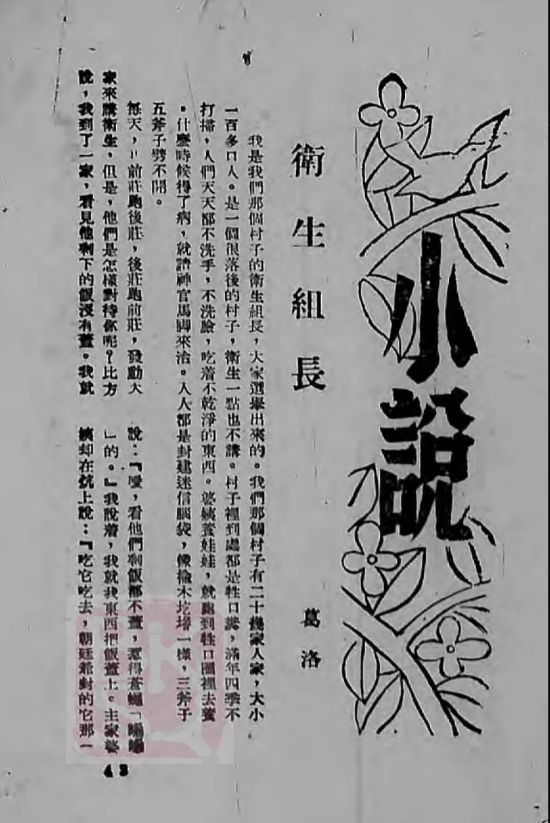 小說
衛生組長
葛洛
我是我們那個村子的衛生組長，大家選舉出來的。我們那個村子有二十幾家人家，大小
一百多口人。是一個很落後的村子，衛生一點也不講。村子裡到處都是牲口糞，滿年四季不
打掃，人們天天都不洗手，不洗臉，吃着不乾淨的東西。婆姨養娃娃，就跑到牲口圈裡去養
。什麼時候得了病，就請神官馬脚來治。人人都是封建迷信腦袋，像榆木圪墶一樣，三斧子
五斧子劈不開。
每天，前莊跑後莊，後莊跑前莊，發動大
家來講衛生，但是，他們是怎樣對待你呢？比方
說，我到了一家，看見他剩下的飯沒有蓋。我就
說：『噯，看他們剩飯都不蓋，惹得蒼蠅「嗡嗡
」的。』我說着，我就找東西把飯蓋上。主家婆
姨却在炕上說：『吃它吃去，朝廷爺封的它那一
43